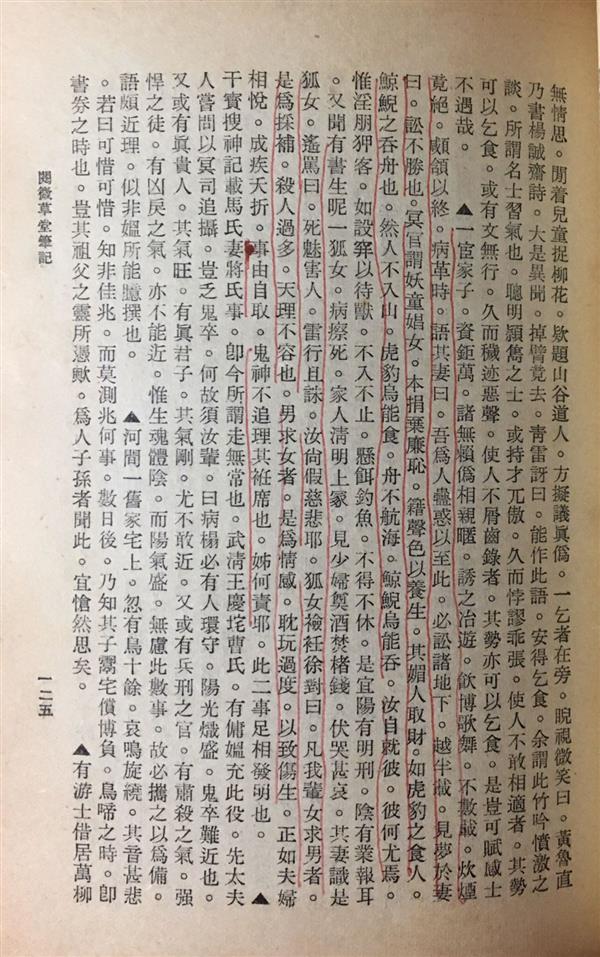 無情思。閒着兒童捉柳花。欵題山谷道人。方擬議眞僞。一乞者在旁。睨視微笑曰。黃魯直
乃書楊誠齋詩。大是異聞。掉臂竟去。靑雷訝曰。能作此語。安得乞食。余謂此竹吟憤激之
談。所謂名士習氣也。聰明穎雋之士。或恃才兀傲。久而悖謬乖張。使人不敢相適者。其勢
可以乞食。或有文無行。久而穢迹惡聲。使人不屑齒錄者。其勢亦可以乞食。是豈可賦感士
不遇哉。　▲一宦家子。資鉅萬。諸無賴僞相親暱。誘之冶遊。飮博歌舞。不數載。炊煙
竟絕。顑頷以終。病革時。語其妻曰。吾爲人蠱惑以至此。必訟諸地下。越半載。見夢於妻
曰。訟不勝也。冥官謂妖童娼女。本捐棄廉恥。籍聲色以養生。其媚人取財。如虎豹之食人。
鯨鯢之吞舟也。然人不入山。虎豹烏能食。舟不航海。鯨鯢烏能吞。汝自就彼。彼何尤焉。
惟淫朋狎客。如設穽以待獸。不入不止。懸餌釣魚。不得不休。是宜陽有明刑。陰有業報耳
。又聞有書生呢一狐女。病瘵死。家人淸明上冢。見少婦奠酒焚楮錢。伏哭甚哀。其妻識是
狐女。遙罵曰。死魅害人。雷行且誅。汝尙假慈悲耶。狐女襝衽徐對曰。凡我輩女求男者。
是爲採補。殺人過多。天理不容也。男求女者。是爲情感。耽玩過度。以致傷生。正如夫婦
相悅。成疾夭折。事由自取。鬼神不追理其衽席也。姊何責耶。此二事足相發明也。　▲
干寶搜神記載馬氏妻將氏事。卽今所謂走無常也。武淸王慶垞曹氏。有傭媼充此役。先太夫
人嘗問以冥司追攝。豈乏鬼卒。何故須汝輩。曰病榻必有人環守。陽光熾盛。鬼卒難近也。
又或有眞貴人。其氣旺。有眞君子。其氣剛。尤不敢近。又或有兵刑之官。有肅殺之氣。强
悍之徒。有凶戾之氣。亦不能近。惟生魂體陰。而陽氣盛。無慮此數事。故必攜之以爲備。
語頗近理。似非媼所能臆撰也。　▲河間一舊家宅上。忽有鳥十餘。哀鳴旋繞。其音甚悲
。若曰可惜可惜。知非佳兆。而莫測兆何事。數日後。乃知其子鬻宅償博負。鳥啼之時。卽
書券之時也。豈其祖父之靈所憑歟。爲人子孫者聞此。宜愴然思矣。　▲有游士借居萬柳
閱微草堂筆記
一二五